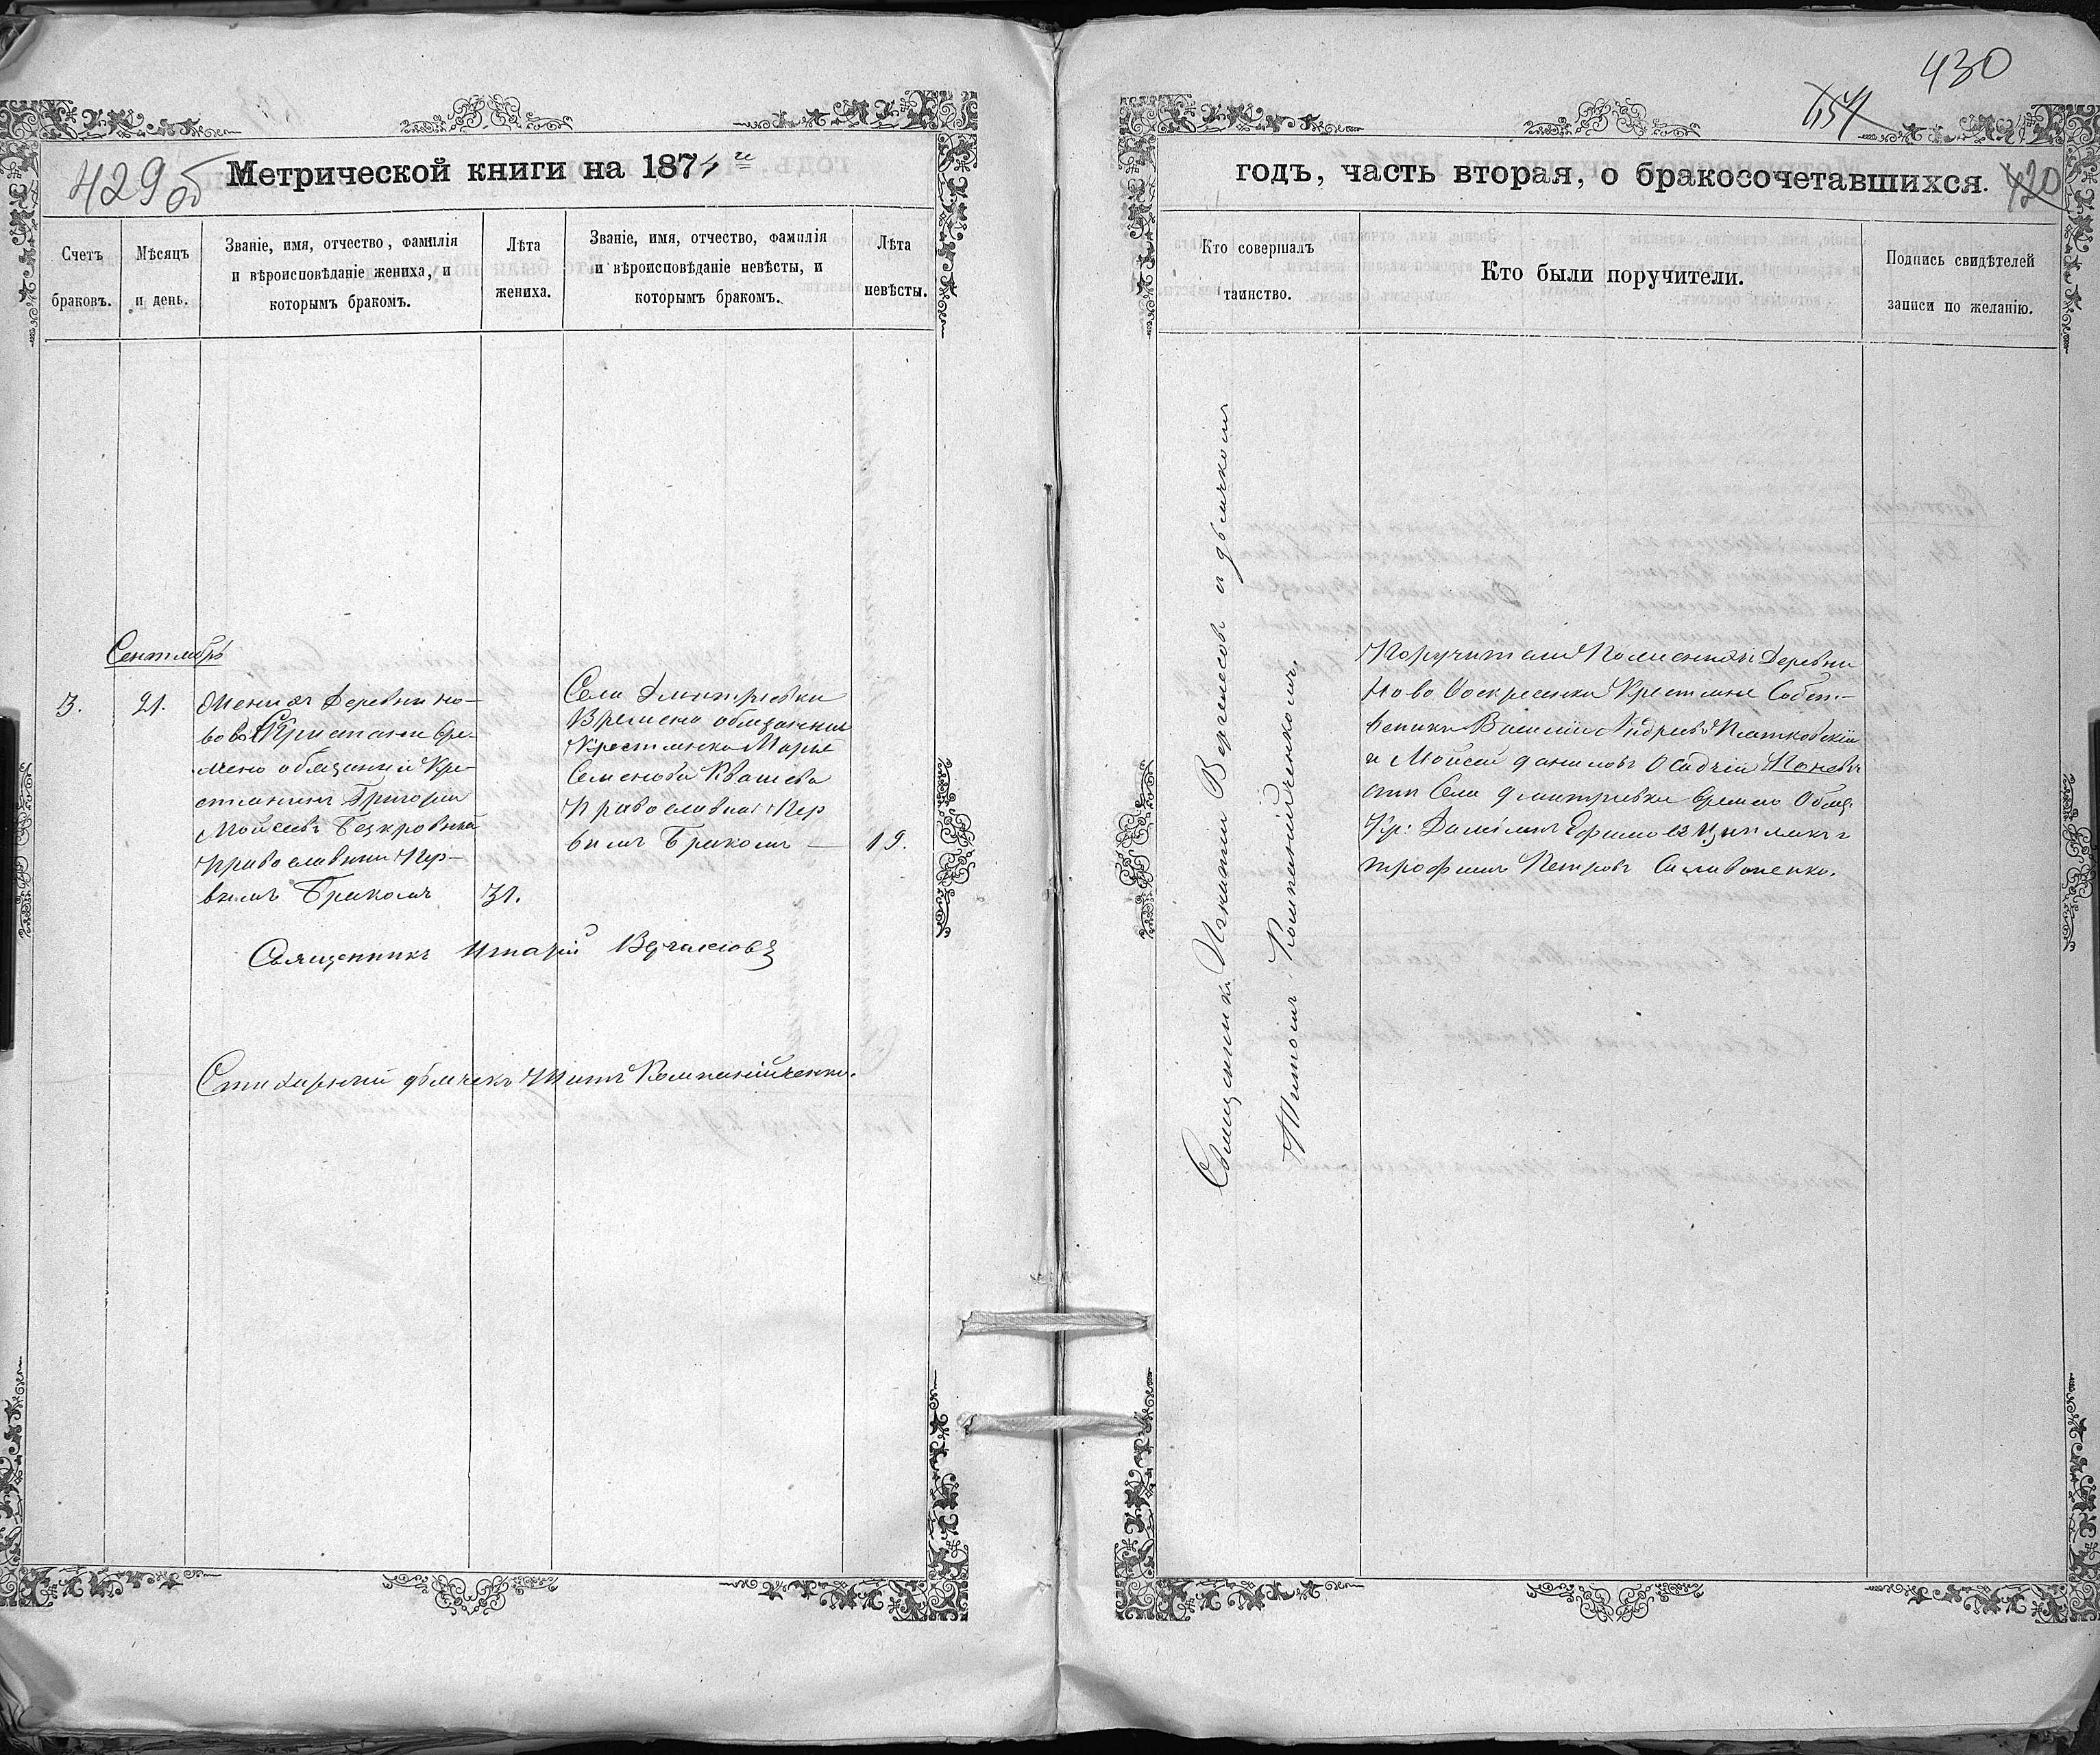 429 об
Метрической книги на 187
Счетъ
браковъ.
Мѣсяцъ
и день.
Званіе, имя, отчество, фамилія
и вѣроисповѣданіе жениха, и
которымъ бракомъ.
Лѣта
жениха.
Званіе, имя, отчество, фамилія
и вѣроисповѣданіе невѣсты, и
которымъ бракомъ.
Лѣта
невѣсты.
Сентябрь
3.
21.
Женихъ Деревни но-
вре-
мено обязанный Кре-
стьянинъ Григорій
Мойсеевъ Безкровный
православный Пер-
вымъ Бракомъ
31.
Села Дмитріевки
Времено обязанная
Крестьянка Марья
Семенова Квашева
Православная Пер
вымъ Бракомъ —
19.
Священникъ Игнатій
Стихарный дьячекъ Титъ Компанійченко.
430
654
420
годъ, часть вторая, о бракосочетавшихся.
Кто совершалъ
таинство.
Кто были поручители.
Подпись свидѣтелей
записи по желанію.
Священникъ Игнатій и дьячкомъ
Титомъ Компанійченкомъ.
Поручители По женихѣ Деревни
Ново Воскресенки Крестьяне Собст-
веники Василій Андреевъ Платковскій
и Мойсей Даниловъ Осадчій По невѣ
сти Села Дмитріевки времено Обяз.
Кр: Даміянъ Ефимовъ и
трофимъ Петровъ Силивоненко.